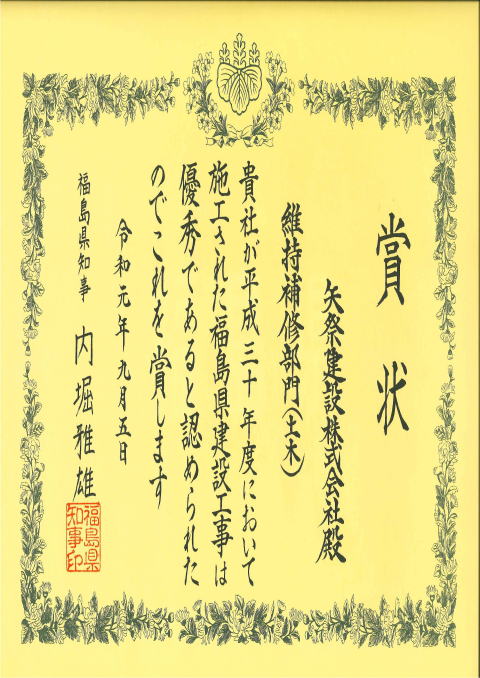 賞状
矢祭建設株式会社殿
維持補修部門（土木）
貴社が平成三十年度において
施工された福島県建設工事は
優秀であると認められた
のでこれを賞します
令和元年九月五日
福島県知事 内堀雅雄
福島県
知事印